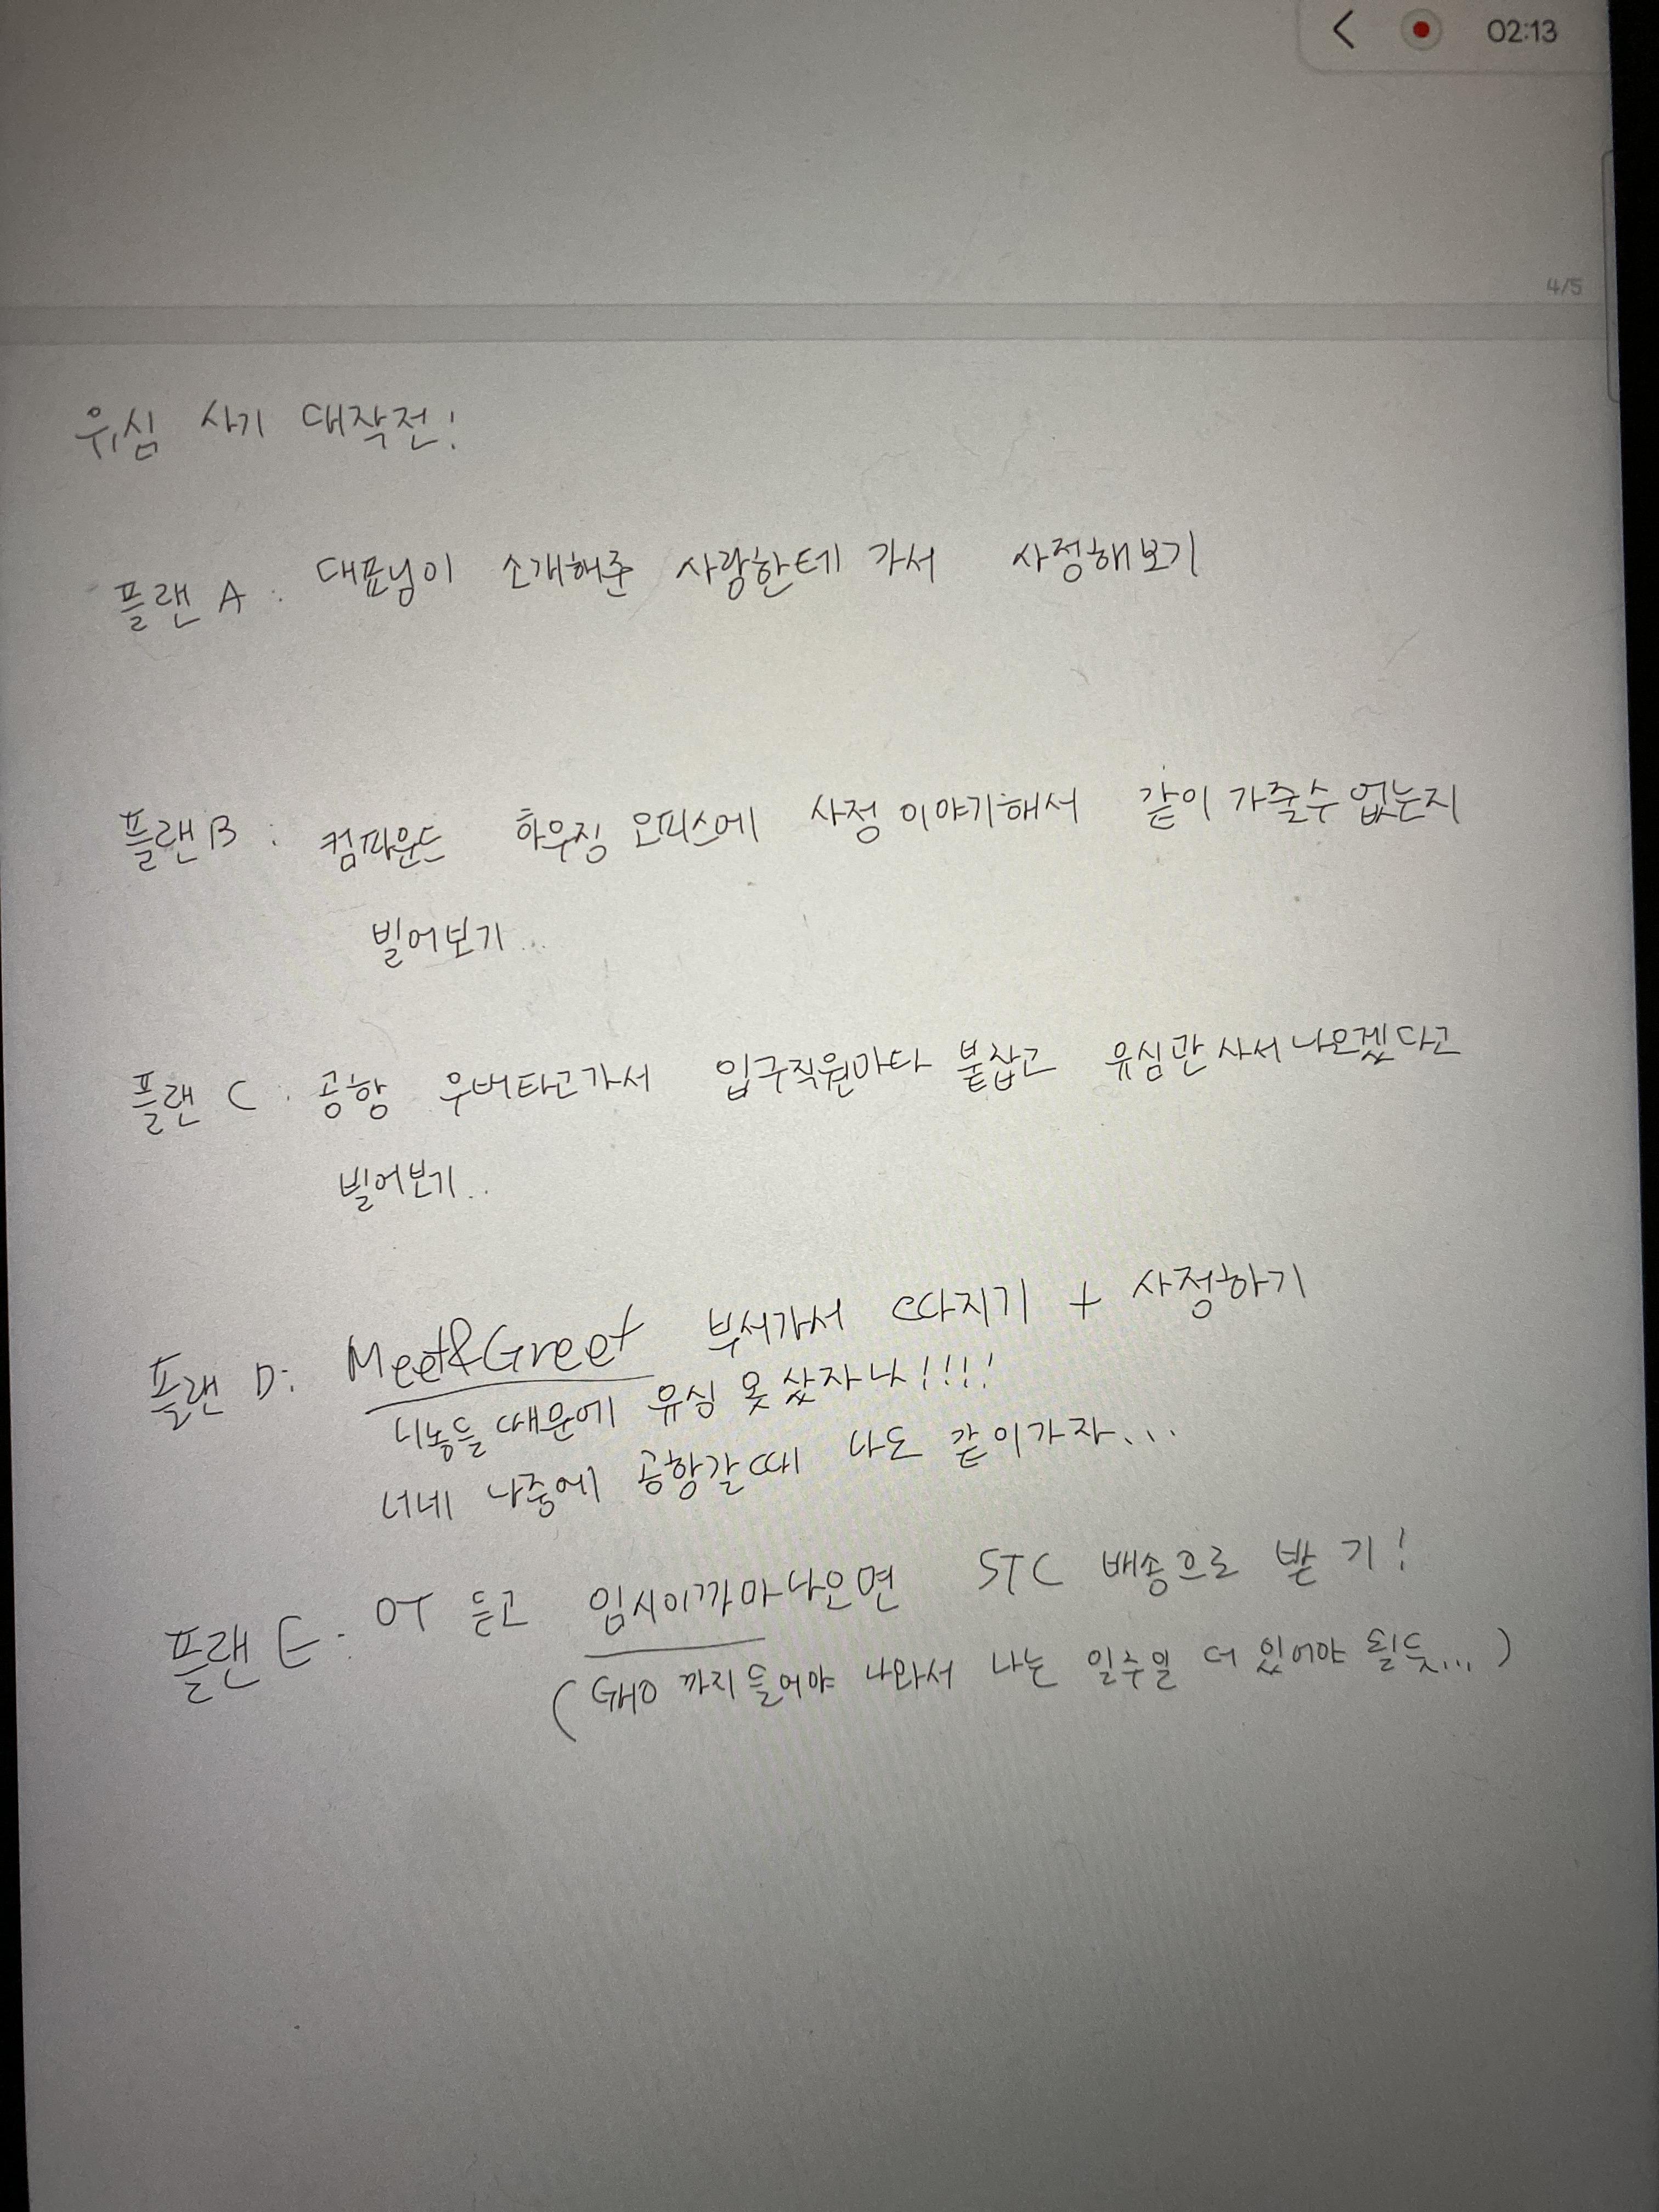 02:13
4/5
유심 사기 대작전!
플랜 A : 대표님이 소개해준 사람한테 가서 사정해보기
플랜 B : 컴파운드 하우징 오피스에 사정 이야기해서 같이 가줄수 없는지
빌어보기...
플랜 C : 공항 우버타고가서 입구직원마다 붙잡고 유심만 사서 나오겠다고
빌어보기..
플랜 D: Meet&Greet 부서가서 따지기 + 사정하기
니놈들 때문에 유심 못 샀자나!!!!
너네 나중에 공항갈때 나도 같이가자...
플랜 E: OT 듣고 임시이까마나오면 STC 배송으로 받기!
(GHO 까지 들어야 나와서 나는 일주일 더 있어야 될듯...)